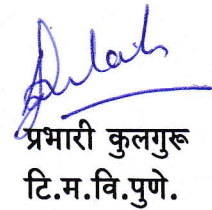 प्रभारी कुलगुरू
टि.म.वि.पुणे.